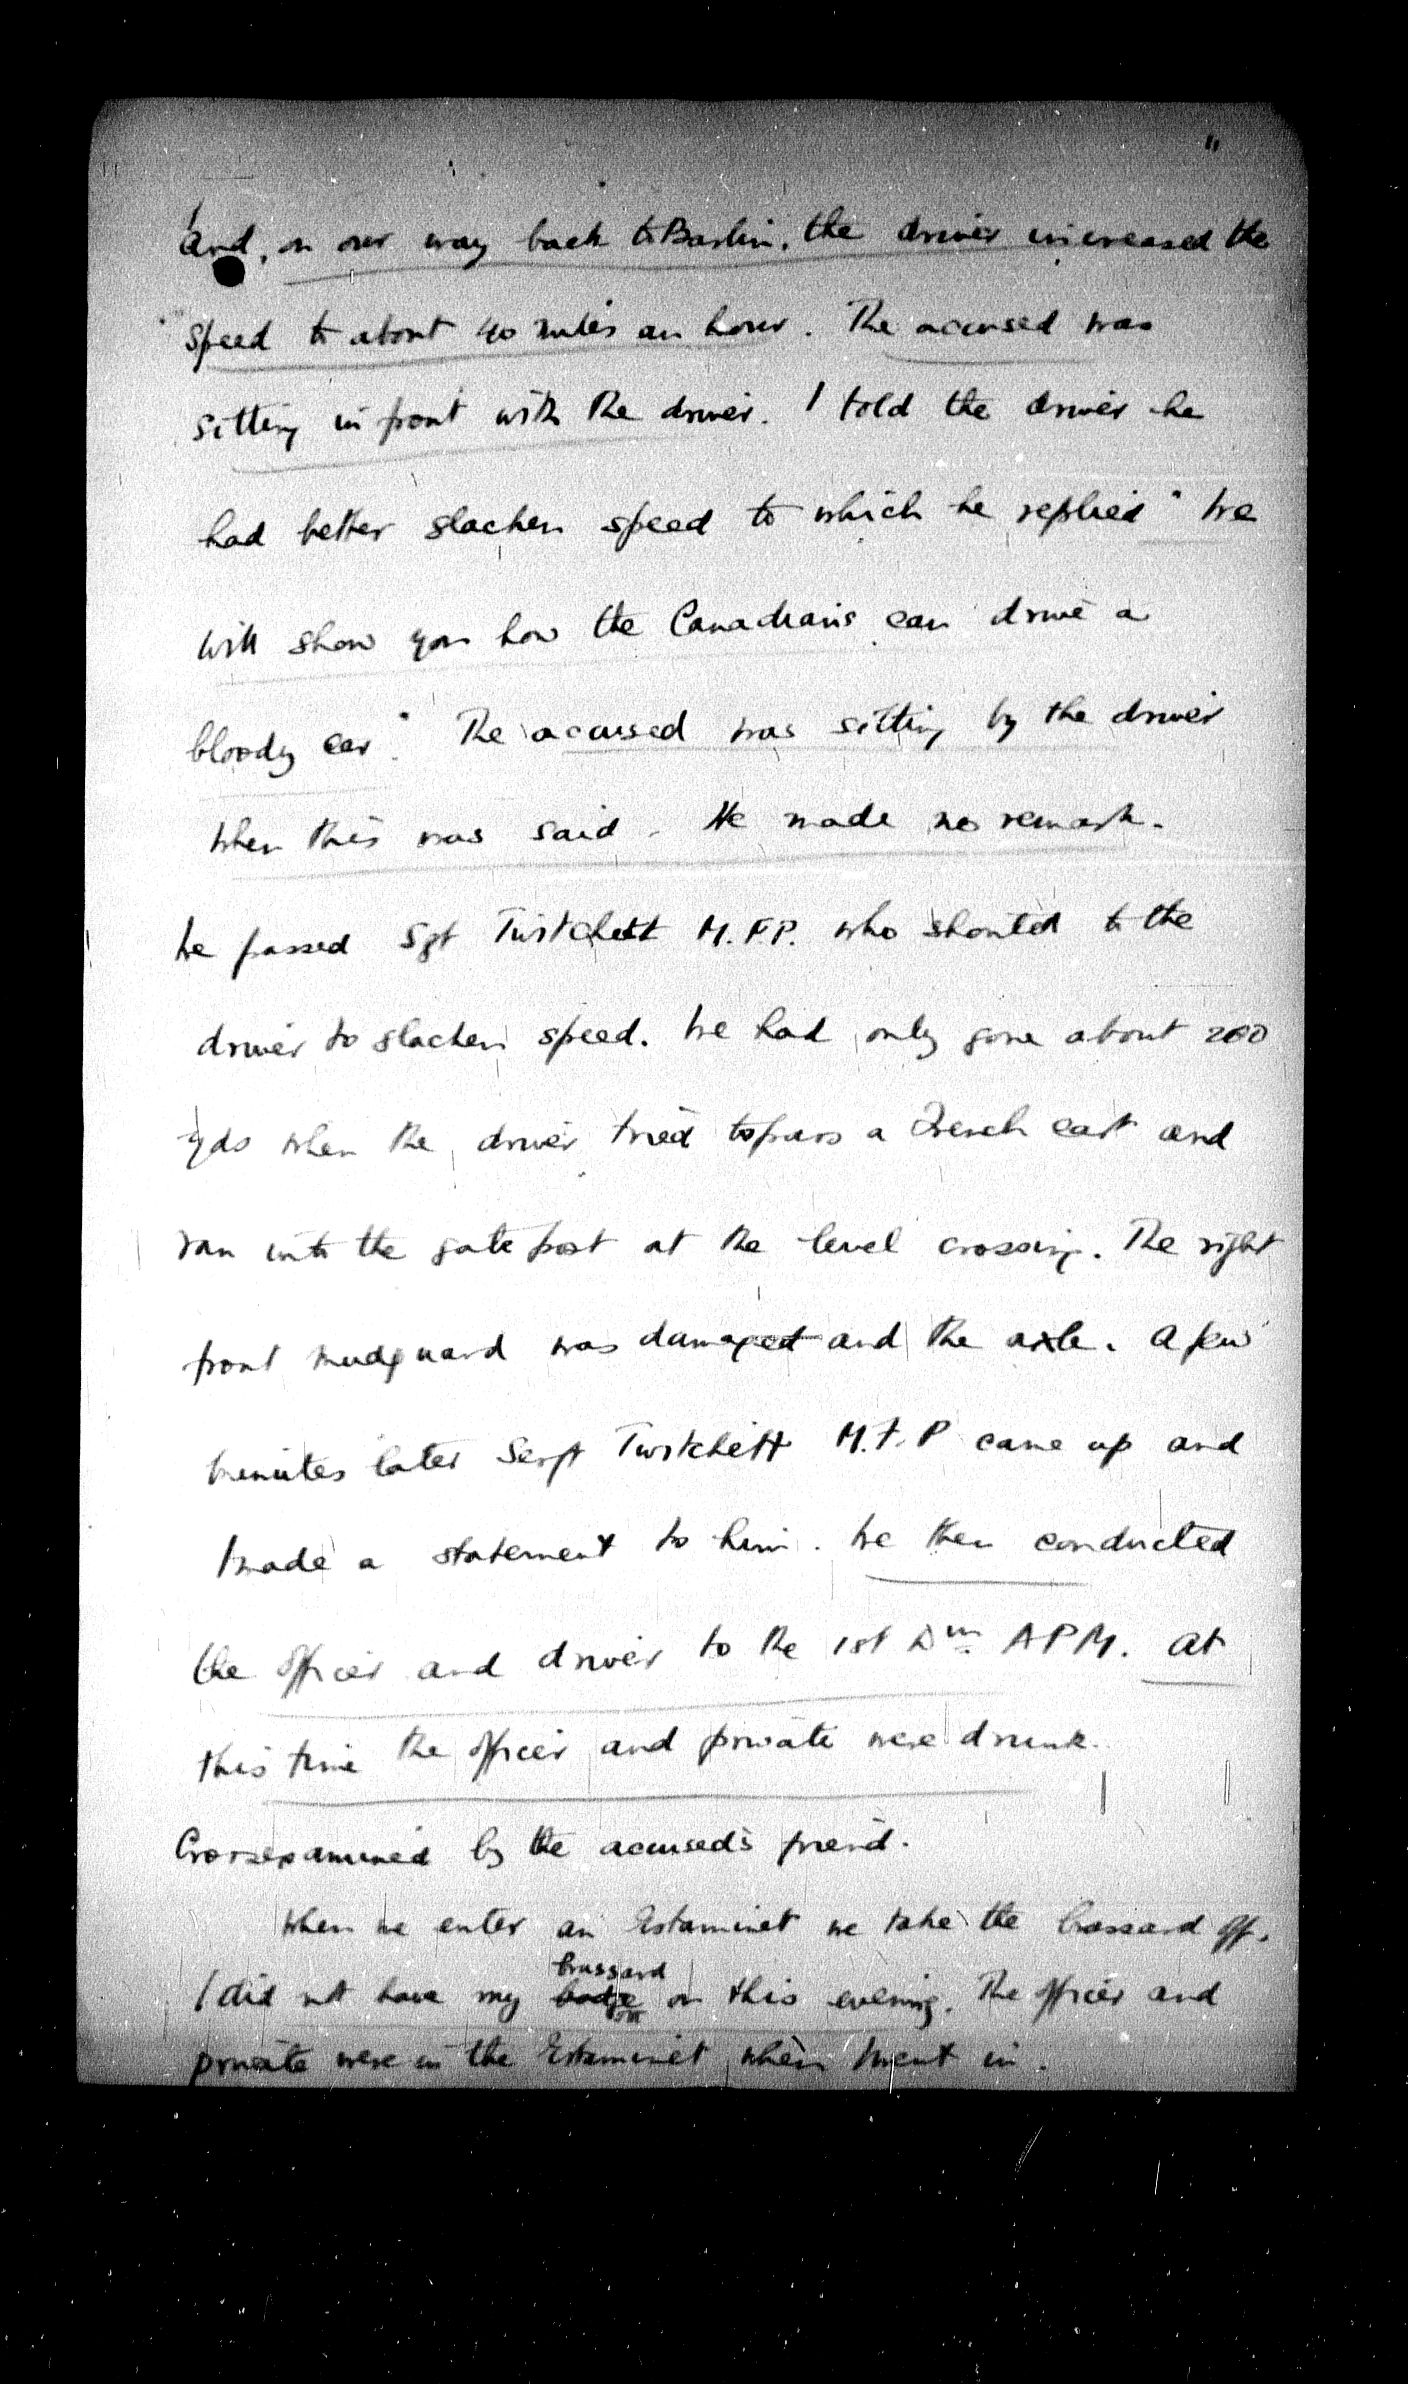 "
and, on our way back to Barlin, the driver increased the
speed to about 40 miles an hour. The accused was
sitting in front with the driver. I told the driver he
had better slacken speed to which he replied "We
will show you how the Canadians can drive a
bloody car". The accused was sitting by the driver
when this was said. He made no remark.
We passed Sgt Twitchett M.F.P. who shouted to the
driver to slacken speed. We had only gone about 200
yds when the driver tried to pass a French cart and
ran into the gate post at the level crossing. The right
front mudguard was damaged and the axle. A few
minutes later Sergt Twitchett M.F.P came up and
I made a statement to him. We then conducted
the officer and driver to the 1st Dvn APM. At
this time the officer and private were drunk.
Crossexamined by the accused's friend.
When we enter an Estaminet we take the brassard off.
brassard
I did not have my badge on this evening. The officer and
private were in the Estaminet when I went in.